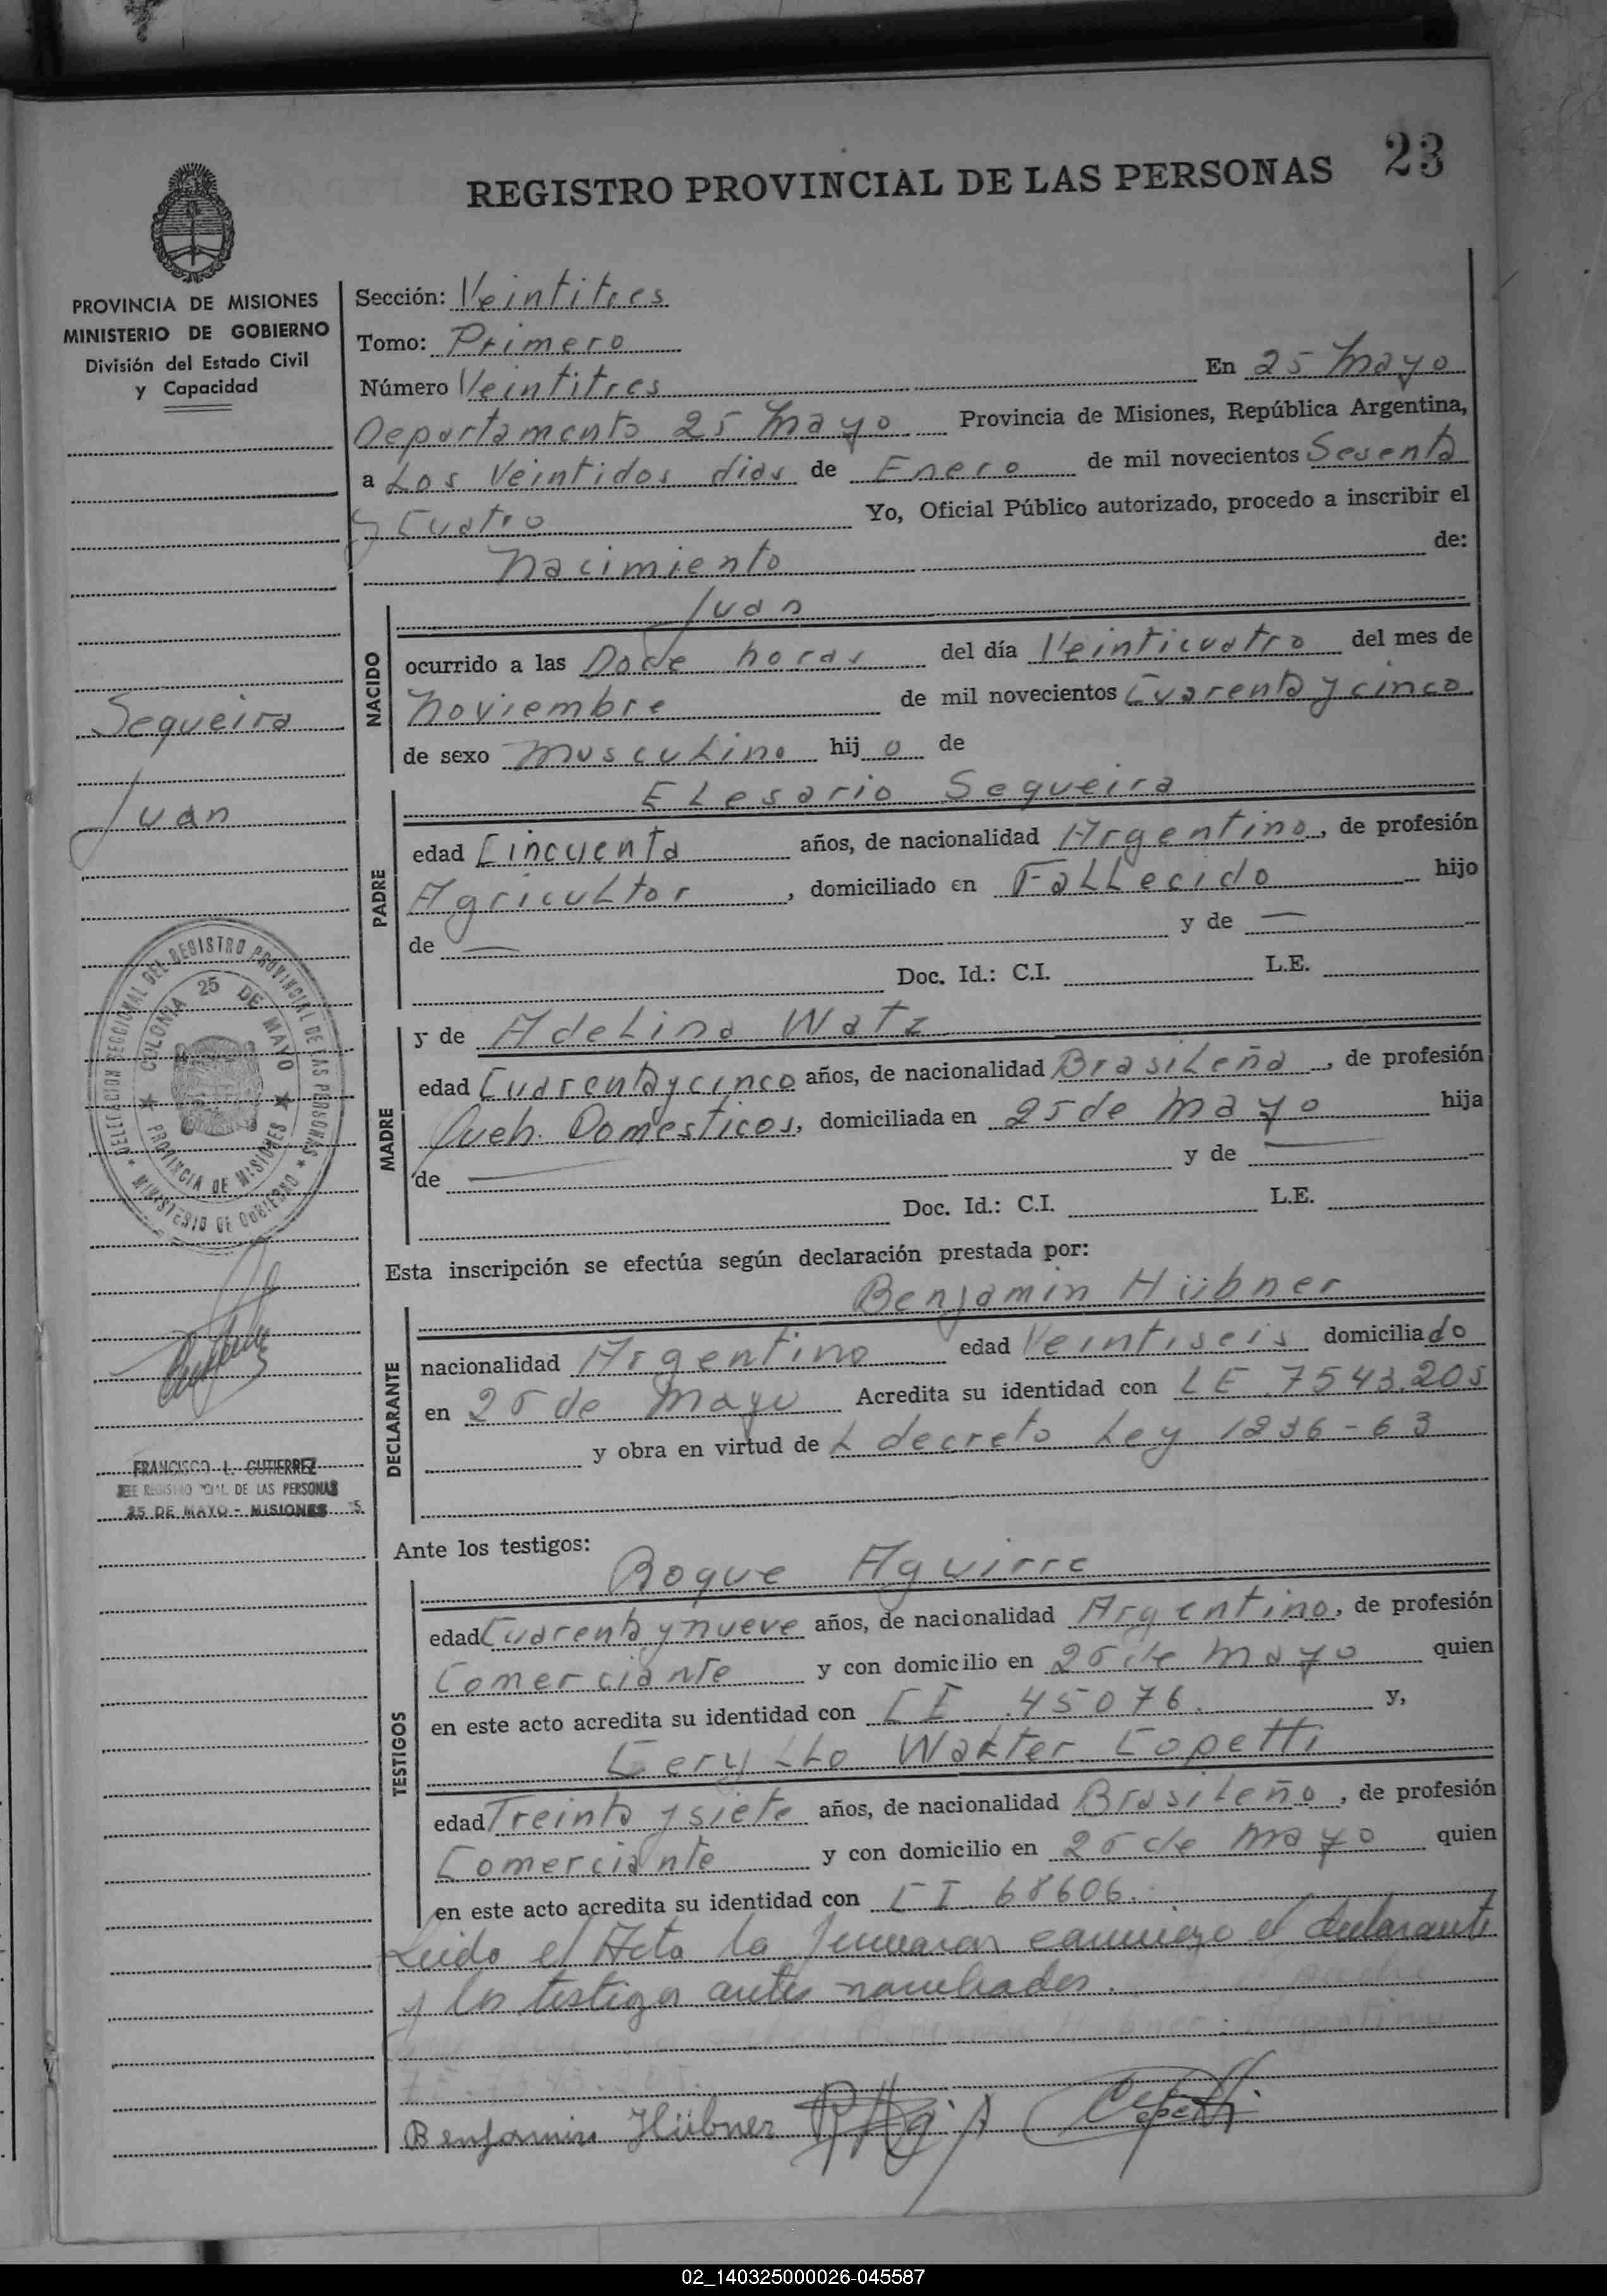 23
REGISTRO PROVINCIAL DE LAS PERSONAS
PROVINCIA DE MISIONES
MINISTERIO DE GOBIERNO
División del Estado Civil
y Capacidad
Sección: Veintitres
Tomo: Primero
Número Veintitres En 25 Mayo
Departamento 25 Mayo Provincia de Misiones, República Argentina,
a Los Veintidos dias de Enero de mil novecientos Sesenta
y Cuatro Yo, Oficial Público autorizado, procedo a inscribir el
Nacimiento de:
Juan
NACIDO
ocurrido a las Doce horas del día Veinticuatro del mes de
Noviembre de mil novecientos Cuarenta y cinco
de sexo Musculino hij o de
Sequeira
Juan
PADRE
Elesario Sequeira
edad Cincuenta años, de nacionalidad Argentino, de profesión
Agricultor, domiciliado en Fallecido hijo
de — y de —
Doc. Id.: C.I. L.E.
MADRE
y de Adelina Watz
edad Cuarenta y cinco años, de nacionalidad Brasileña, de profesión
Queh. Domesticos, domiciliada en 25 de Mayo hija
de — y de —
Doc. Id.: C.I. L.E.
DELEGACION SECCIONAL DEL REGISTRO PROVINCIAL DE LAS PERSONAS
★ MINISTERIO DE GOBIERNO ★
COLONIA 25 DE MAYO
★ PROVINCIA DE MISIONES ★
Esta inscripción se efectúa según declaración prestada por:
DECLARANTE
Benjamin Hübner
nacionalidad Argentino edad Veintiseis domiciliado
en 25 de Mayo Acredita su identidad con LE 7543.205
y obra en virtud de L decreto Ley 1836-63
FRANCISCO L. GUTIERREZ
JEFE REGISTRO PCIAL. DE LAS PERSONAS
25 DE MAYO - MISIONES
Ante los testigos:
TESTIGOS
Roque Aguirre
edad Cuarenta y nueve años, de nacionalidad Argentino, de profesión
Comerciante y con domicilio en 25 de Mayo quien
en este acto acredita su identidad con CI .45076. y,
Walter Copetti
edad Treinta y siete años, de nacionalidad Brasileño, de profesión
Comerciante y con domicilio en 25 de Mayo quien
en este acto acredita su identidad con CI 68606.
Leido el Acta la firmaran conmigo el declarante
y los testigos antes nombrados.
Benjamin Hübner Copetti
02_140325000026-045587